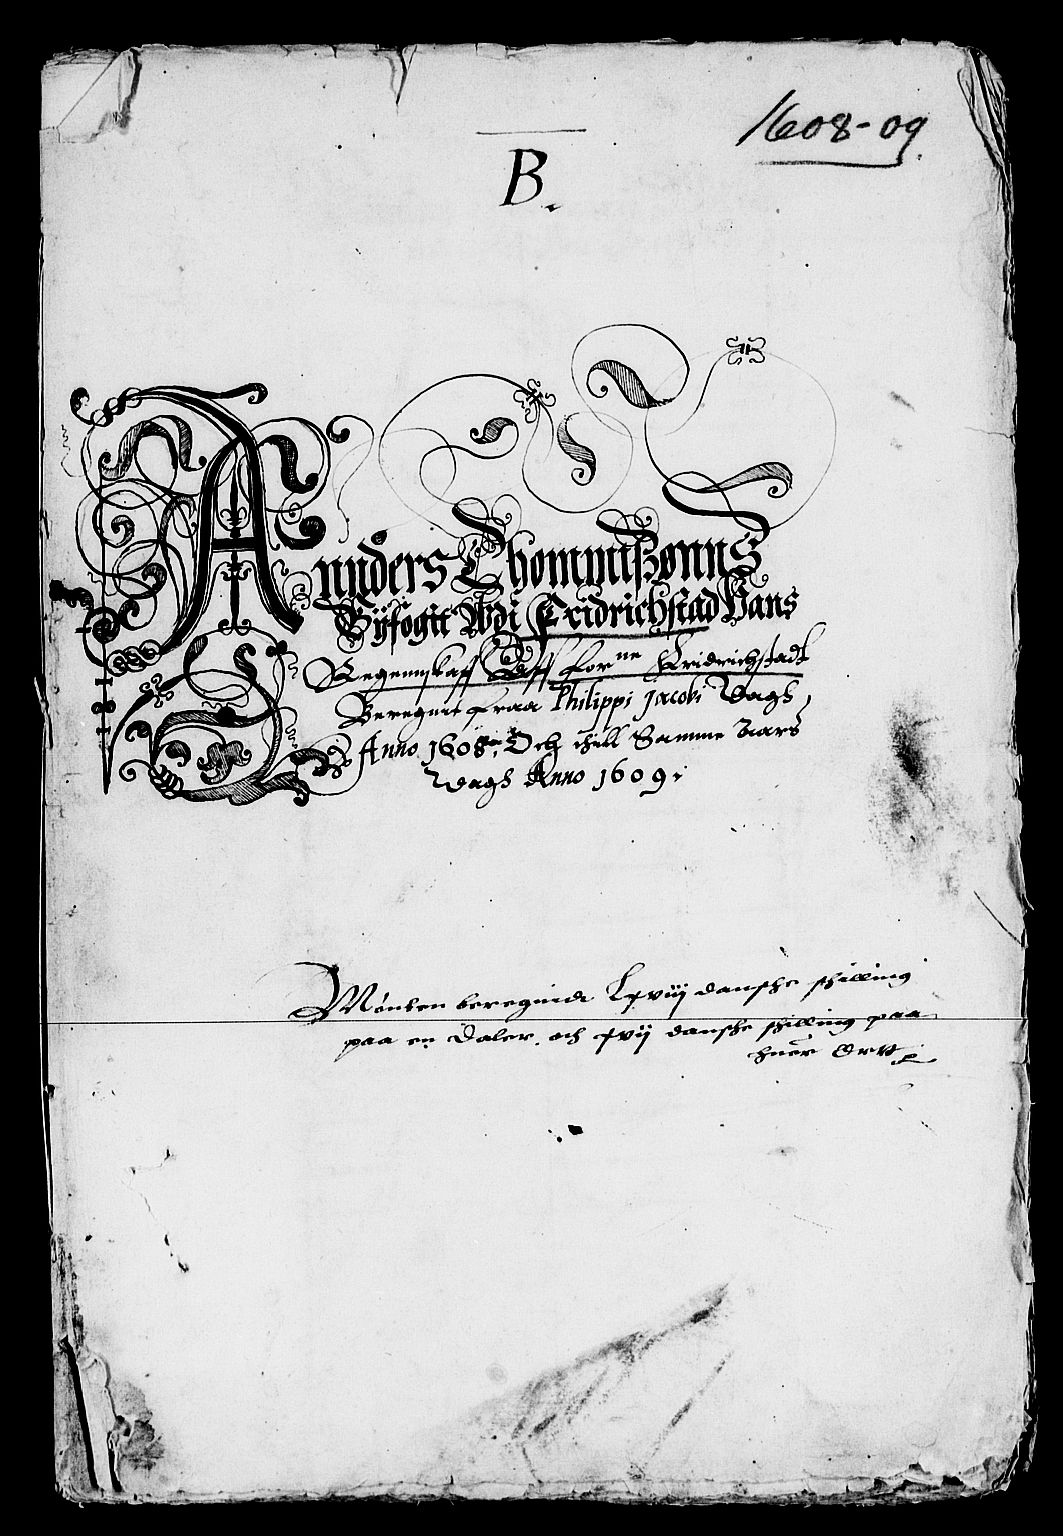 1608-09.
B.
Annders Thommisßønns
Byfogit Udi Fridrichstad Hans
Regennskaff Aff for^ne Fridrichstadt
Beregnit fraa Philippi Jacobi Dagh
Anno 1608, Och thill Samme Aars
Dagh Anno 1609.
Mønten beregnidt Lxviij danske skilling
paa en Daler, och xvij danske skilling paa
huer Ortt